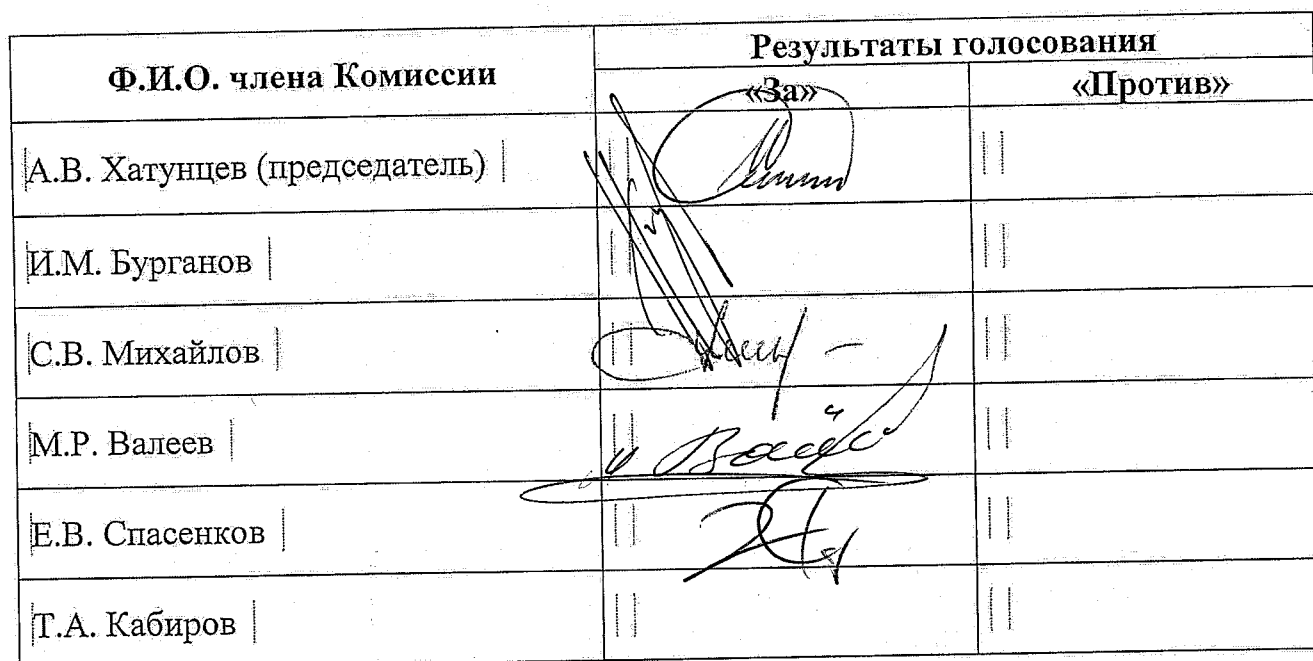 Ф.И.О. члена Комиссии
Результаты голосования
«За»
«Против»
А.В. Хатунцев (председатель)
И.М. Бурганов
С.В. Михайлов
М.Р. Валеев
Е.В. Спасенков
Т.А. Кабиров